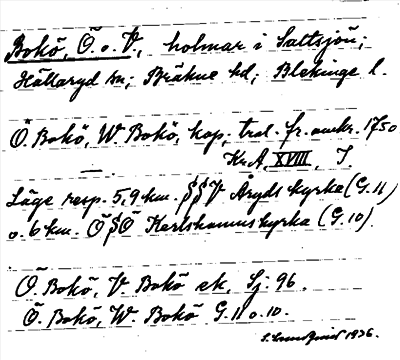 Bokö, Ö. o. V., holmar i Saltsjön;
Hällaryd sn; Bräkne hd; Blekinge l.
Ö. Bokö, W. Bokö, kop. tral. fr. omkr. 1750
Kr. A. XVIII, I.
Läge resp. 5,9 km. SSV Åryds kyrka (G. 11)
o. 6 km. ÖSÖ Karlshamns kyrka (G. 10).
Ö. Bokö, V. Bokö ek, Sj. 96.
Ö. Bokö, W. Bokö G. 11 o. 10.
S. Lundqvist 1936.